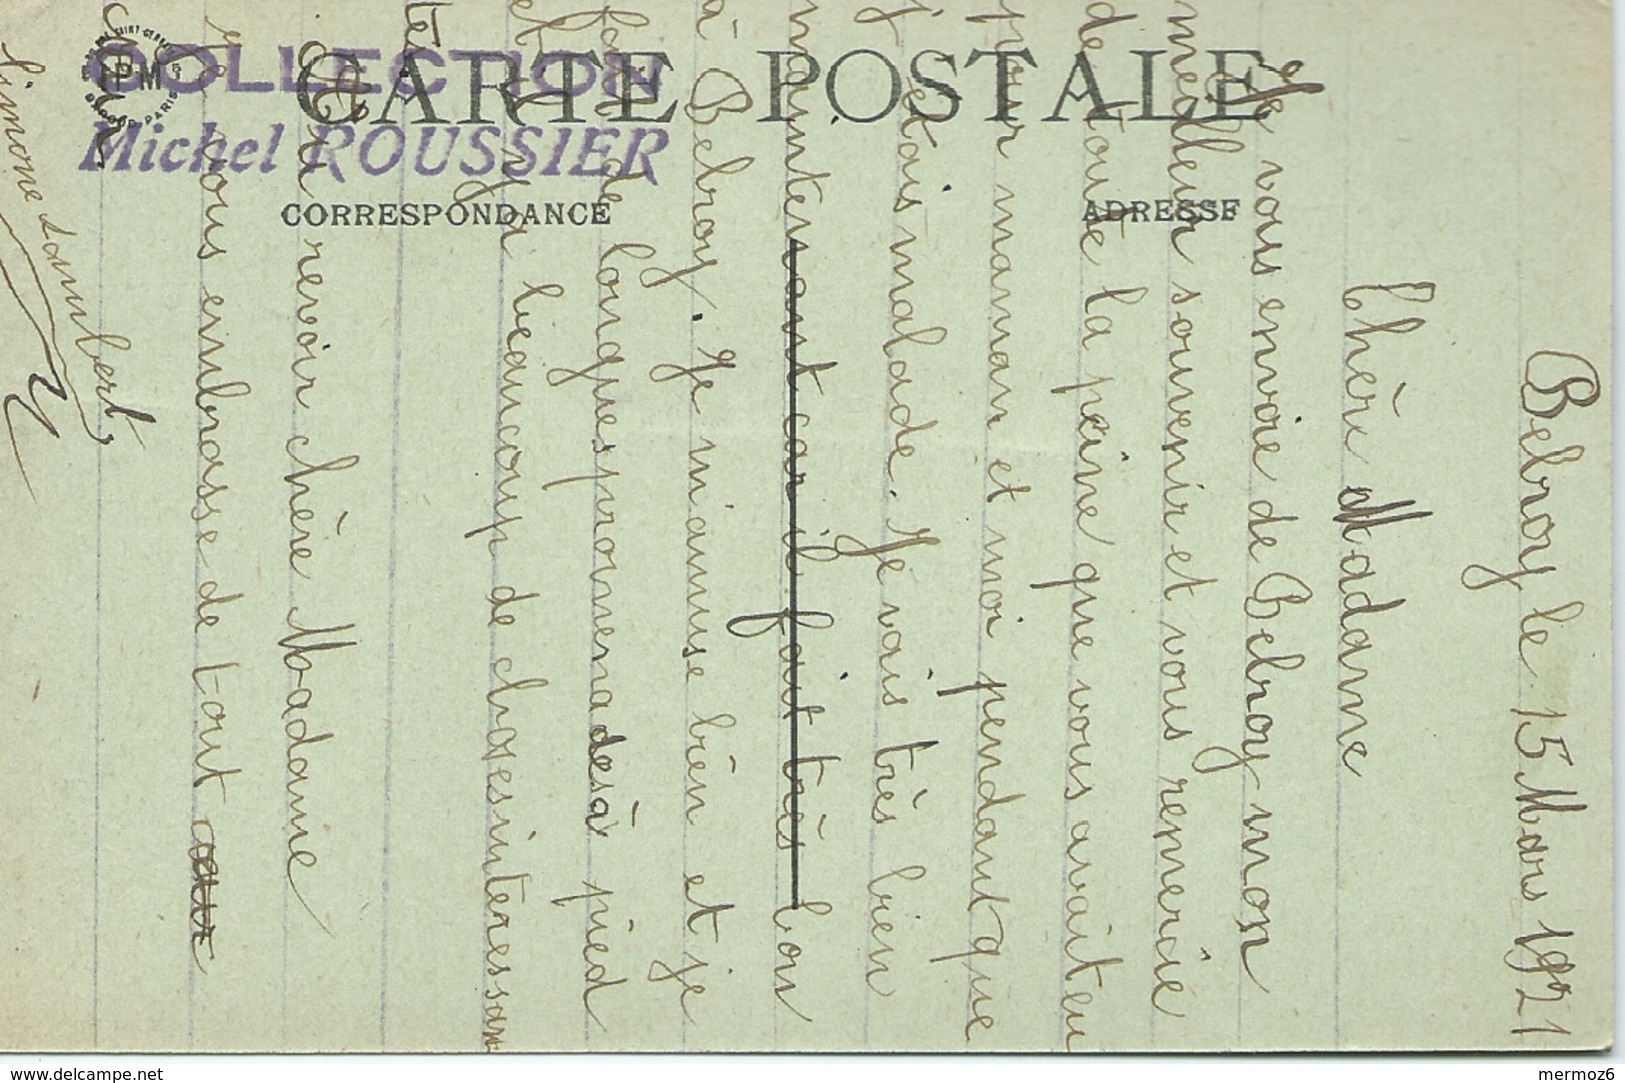 COLLECTION
Michel ROUSSIER
CARTE POSTALE
CORRESPONDANCE
ADRESSE
Belroy le 15 Mars 1921
Chère Madame
Je vous envoie de Belroy mon
meilleur souvenir et vous remercie
de toute la peine que vous avait eu
pour maman et moi pendant que
j'étais malade. Je vais très bien
maintenant car il fait très bon
à Belroy. Je m'amuse bien et je
fais de longues promenades à pied
et il y a beaucoup de choses interessan
tes
Au revoir chère Madame
je vous embrasse de tout
cœur
Simone Lambert
www.delcampe.net
mermoz6